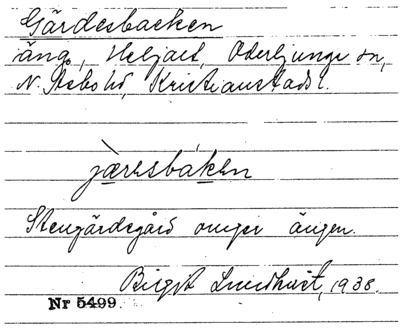 Gärdesbacken
äng, Heljalt, Oderljunga sn,
N. Åsbo hd, Kristianstads l.
jæ̀rəsbákən
Stengärdsgård omger ängen.
Birgit Lundhvit, 1938.
Nr 5499.